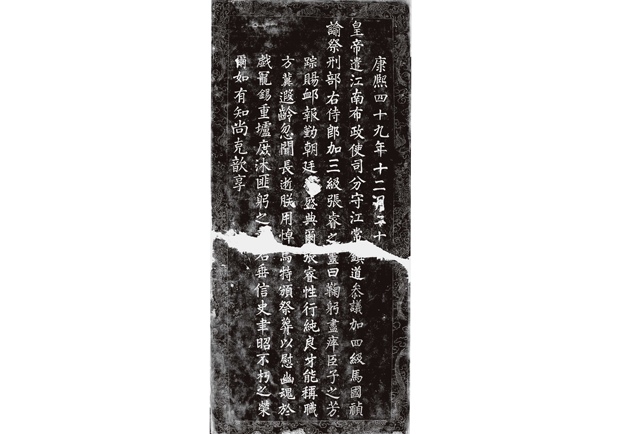 康熙四十九年十二月二十
皇帝遣江南布政使司分守江常鎮道叅議加四級馬國禎
諭祭刑部右侍郎加三級張睿之靈曰鞠躬盡瘁臣子之芳
踪賜卹報勤朝廷之盛典爾張睿性行純良才能稱職
方冀遐齡忽聞長逝朕用悼焉特頒祭葬以慰幽魂於
戲寵錫重壚庶沐匪躬之 名垂信史聿昭不朽之榮
爾如有知尚克歆享